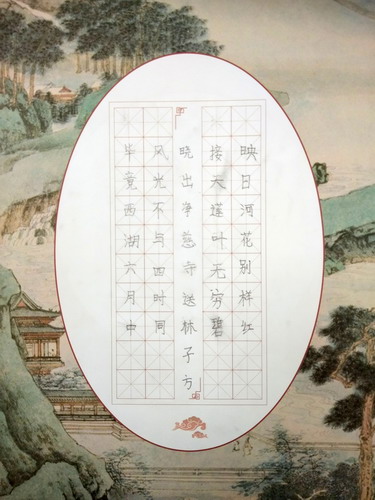 毕竟西湖六月中
风光不与四时同
晓出净慈寺送林子方
接天莲叶无穷碧
映日河花别样红